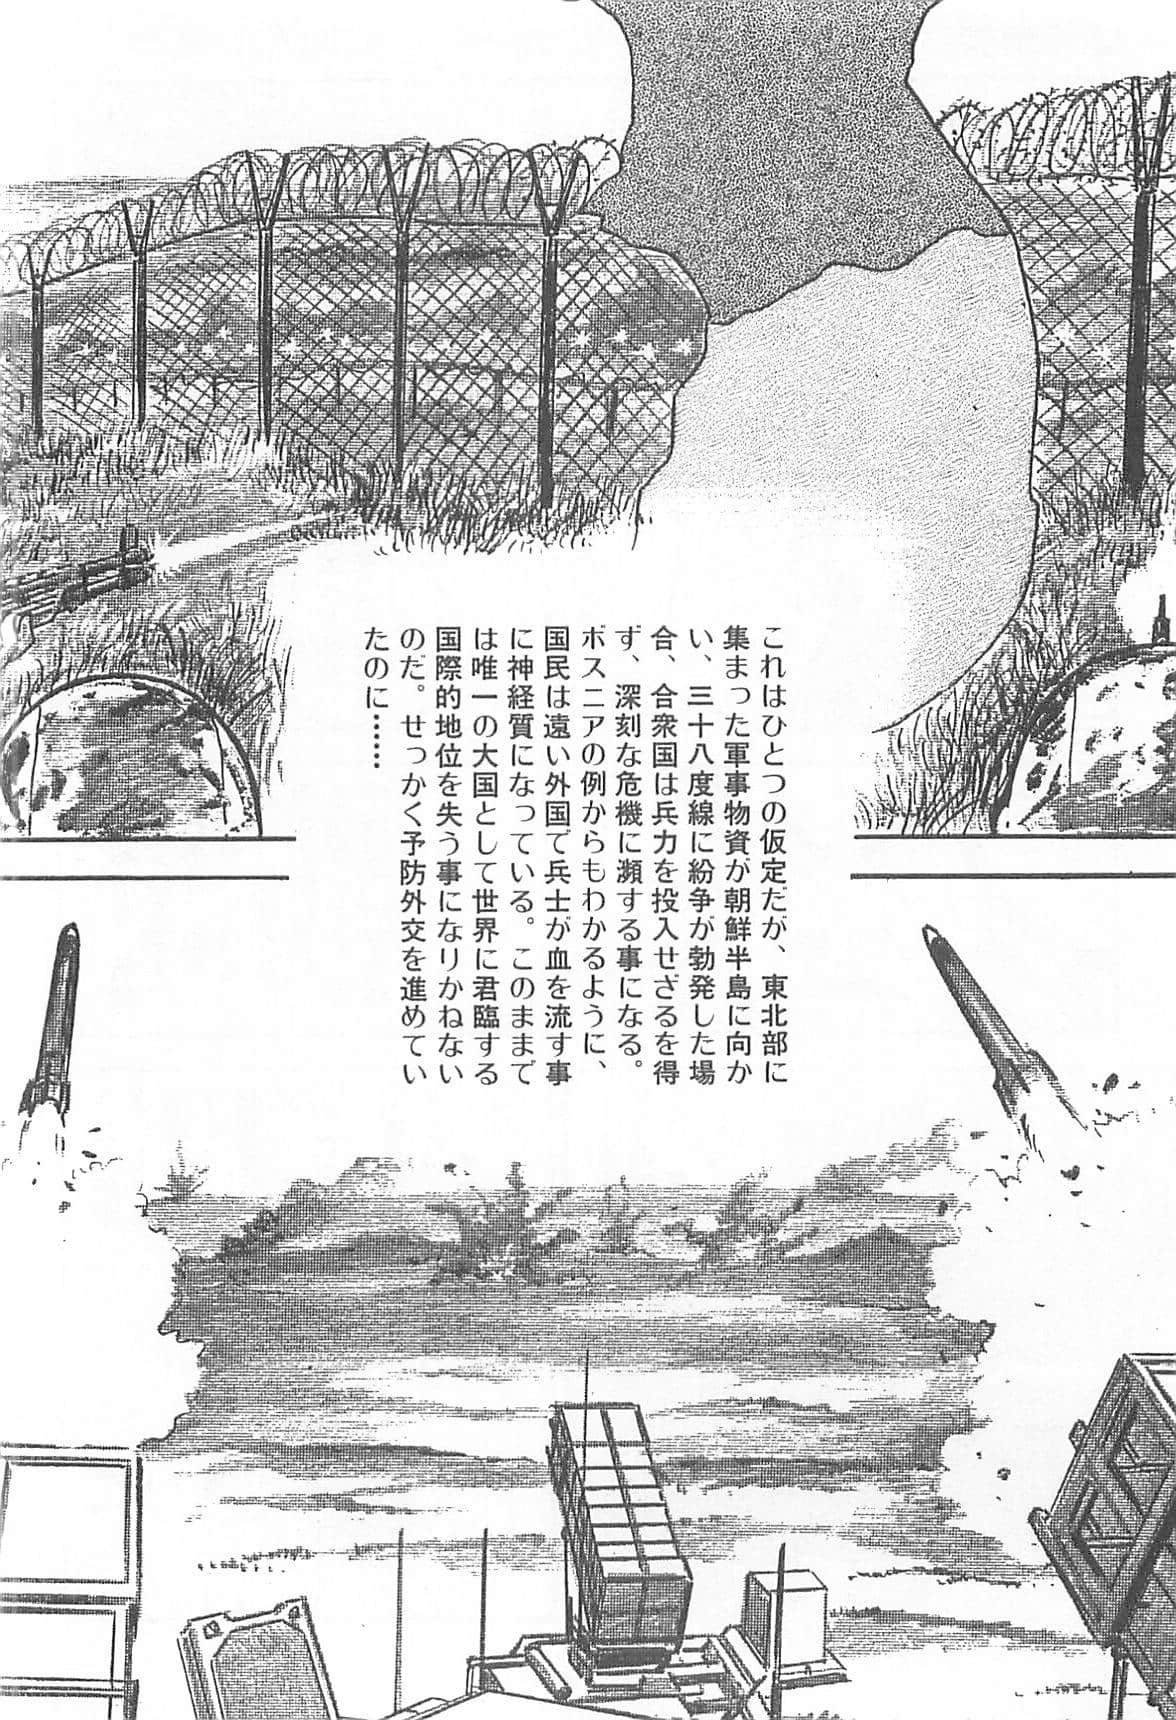 これはひとつの仮定だが、東北部に
集まった軍事物資が朝鮮半島に向か
い、三十八度線に紛争が勃発した場
合、合衆国は兵力を投入せざるを得
ず、深刻な危機に瀕する事になる。
ボスニアの例からもわかるように、
国民は遠い外国で兵士が血を流す事
に神経質になっている。このままで
は唯一の大国として世界に君臨する
国際的地位を失う事になりかねない
のだ。せっかく予防外交を進めてい
たのに……